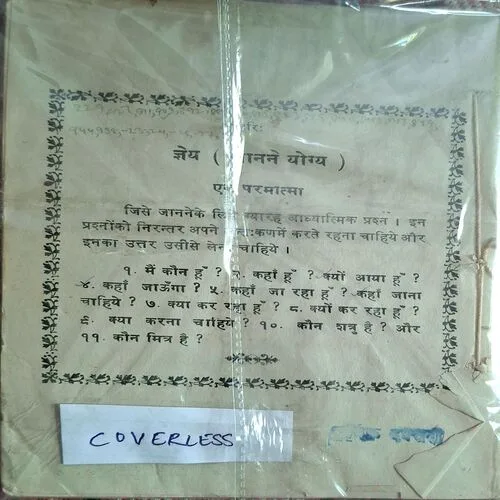 ज्ञेय ( जानने योग्य )
एक परमात्मा
जिसे जाननेके लिये ग्यारह आध्यात्मिक प्रश्न । इन
प्रश्नोंको निरन्तर अपने अन्तःकणमें करते रहना चाहिये और
इनका उत्तर उसीसे लेना चाहिये ।
१. मैं कौन हूँ ? २. कहाँ हूँ ? ३. क्यों आया हूँ ?
४. कहाँ जाऊँगा ? ५. कहाँ जा रहा हूँ ? कहाँ जाना
चाहिये ? ७. क्या कर रहा हूँ ? ८. क्यों कर रहा हूँ ?
९. क्या करना चाहिये ? १०. कौन शत्रु है ? और
११. कौन मित्र है ?
COVERLESS